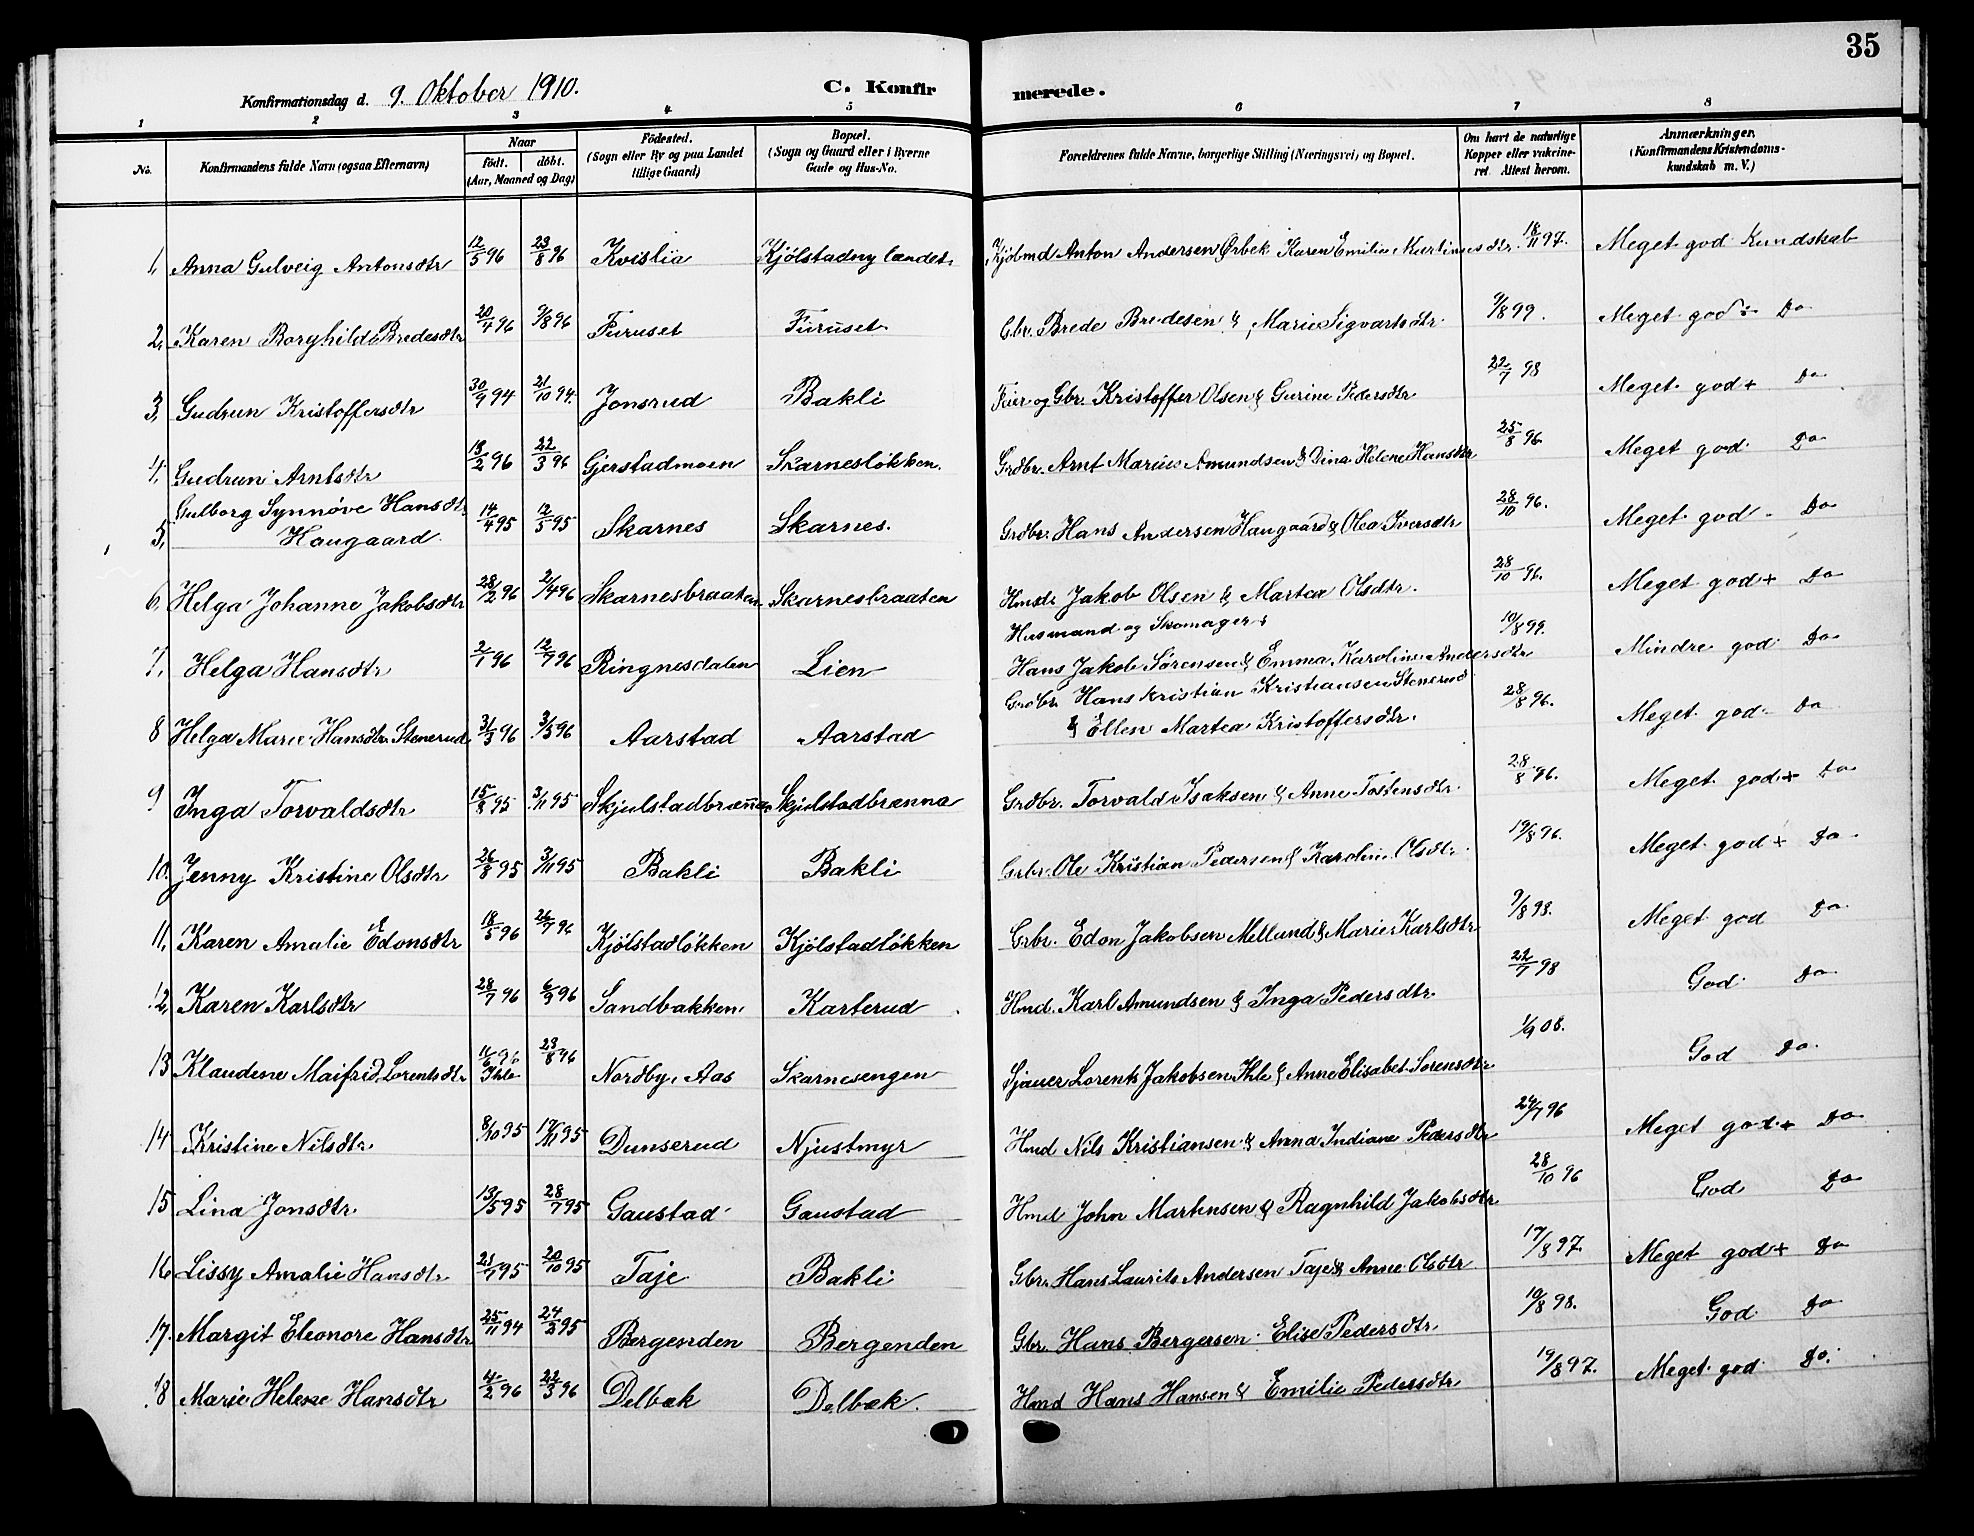 35
Konfirmationsdag d. 9. Oktober 1910. C. Konfirmerede.
1 2 3 4 5 6 7 8
No. Konfirmandens fulde Navn (ogsaa Efternavn) Naar født. døbt. (Aar, Maaned og Dag) Fødested. (Sogn eller By og paa Landet tillige Gaard) Bopæl. (Sogn og Gaard eller i Byerne Gade og Hus-No. Forældrenes fulde Navne, borgerlige Stilling (Næringsvei) og Bopæl. Om havt de naturlige Kopper eller vakcineret Attest herom. Anmærkninger. (Konfirmandens Kristendomskundskab m. V.)
1, Anna Gulveig Antonsdtr 12/5 96 23/8 96 Kvislia Kjölstadnylændet. Kjöbmd Anton Andersen Ørbek Karen Emilie Martinusdtr. 18/11 97. Meget god Kundskab
2, Karen Borghild Bredesdtr 20/4 96 9/8 96 Furuset Furuset Gbr. Brede Bredesen & Marie Sigvartsdtr. 9/8 99. Meget god ÷ Do
3, Gudrun Kristoffersdtr 30/9 94 21/10 94. Jonsrud Bakli Gbr. Kristoffer Olsen & Gurine Pedersdtr 22/7 98 Meget god + Do
4, Gudrun Arntsdtr 18/2 96 22/3 96 Gjerstadmoen Skarnesløkken. Grdbr. Arnt Marius Amundsen & Dina Helene Hansdtr 25/8 96. Meget god Do
5, Gulborg Synnøve Hansdtr Haugaard 14/4 95 12/5 95 Skarnes Skarnes. Grdbr. Hans Andersen Haugaard & Olea Iversdtr 28/10 96. Meget god - Do
6, Helga Johanne Jakobsdtr 28/2 96 2/4 96 Skarnesbraaten Skarnesbraaten Hmd. Jakob Olsen & Martea Olsdtr. 28/10 96. Meget god + Do
7, Helga Hansdtr 2/1 96 12/7 96 Ringnesdalen Lien Husmand og Skomager Hans Jakob Sörensen & Emma Karoline Andersdtr 10/8 99. Mindre god Do
8 Helga Marie Hansdtr. Stenerud 31/3 96 3/5 96 Aarstad Aarstad Grdbr. Hans Kristian Kristiansen Stenerud & Ellen Martea Kristoffersdtr. 28/8 96. Meget god - Do
9 Inga Torvaldsdtr 15/8 95 3/11 95 Skjulstadbrænna Skjulstadbrænna Grdbr. Torvald Isaksen & Anne Tostensdtr. 28/8 96. Meget god + Do
10. Jenny Kristine Olsdtr 26/8 95 3/11 95 Bakli Bakli Grbr. Ole Kristian Pedersen & Karoline Olsdtr. 19/8 96. Meget god + Do
11, Karen Amalie Edonsdtr 18/5 96 26/7 96 Kjölstadløkken Kjölstadløkken Grbr. Edon Jakobsen Mellund & Marie Karlsdtr 9/8 98. Meget god Do
12, Karen Karlsdtr 28/7 96 6/9 96 Sandbakken Karterud Hmd. Karl Amundsen & Inga Pedersdtr. 22/7 98 God Do
13 Klaudene Maifrid Lorentsdtr Ihle 11/6 96 23/8 96 Nordby, Aas Skarnesengen Sjauer Lorents Jakobsen Ihle & Anne Elisabet Sørensdtr 1/9 08. God Do
14 Kristine Nilsdtr. 8/10 95 17/11 95 Dunserud Njustmyr Hmd Nils Kristiansen & Anna Indiane Pedersdtr 24/7 96 Meget god + Do
15 Lina Jonsdtr. 13/5 95 28/7 95 Gaustad Gaustad Hmd John Martinsen & Ragnhild Jakobsdtr 28/10 96 God Do
16 Lissy Amalie Hansdtr 21/7 95 20/10 95 Taje Bakli Gbr. Hans Laurits Andersen Taje & Anne Olsdtr 17/8 97. Meget god + Do
17. Margit Eleonore Hansdtr 25/11 94 24/3 95 Bergenden Bergenden Gbr. Hans Bergersen. Elise Pedersdtr. 10/8 98. God Do
18 Marie Helene Hansdtr 4/2 96 22/3 96 Delbæk Delbæk. Hmd Hans Hansen & Emilie Pedersdtr 19/8 97. Meget god Do.